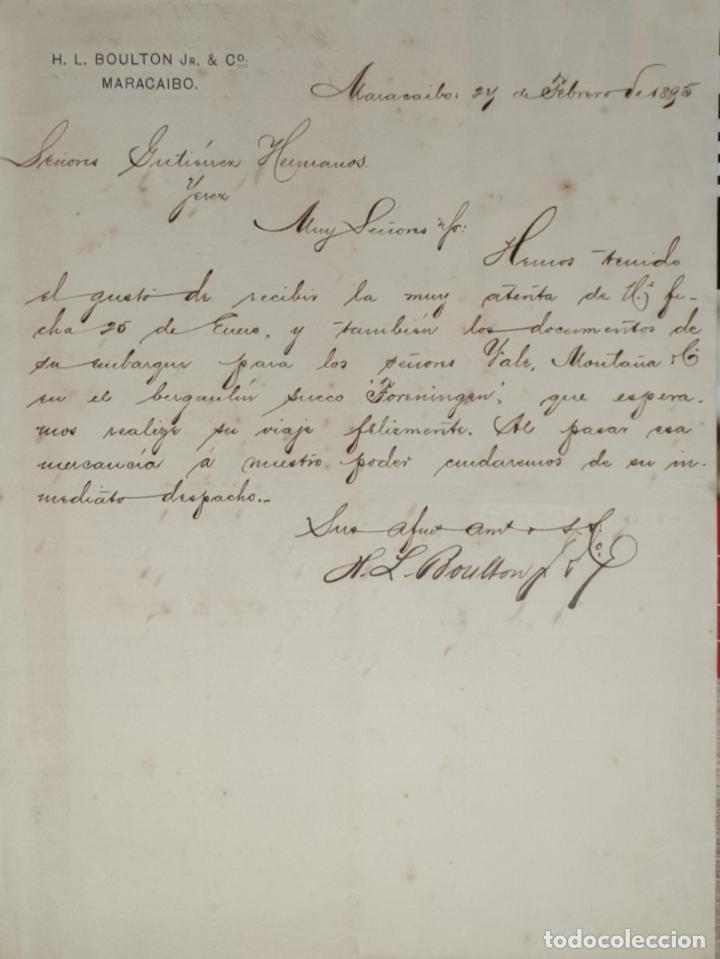 H. L. BOULTON JR. & Co.
MARACAIBO.
Maracaibo: 27 de Febrero de 1895
Señores Gutiérrez Hermanos.
Yerez
Muy Señores
Hemos tenido
el gusto de recibir la muy atenta de fe-
cha 25 de Enero, y también los documentos de
su embarque para los señores Vale, Montaña &
en el bergantín sueco "Foreningen", que espera-
mos realize su viaje felizmente. Al pasar esa
mercancía á nuestro poder cuidaremos de su in-
mediato despacho.-
Sus afmos
H. L. Boulton Jr & Co
todocoleccion
todocoleccion.net